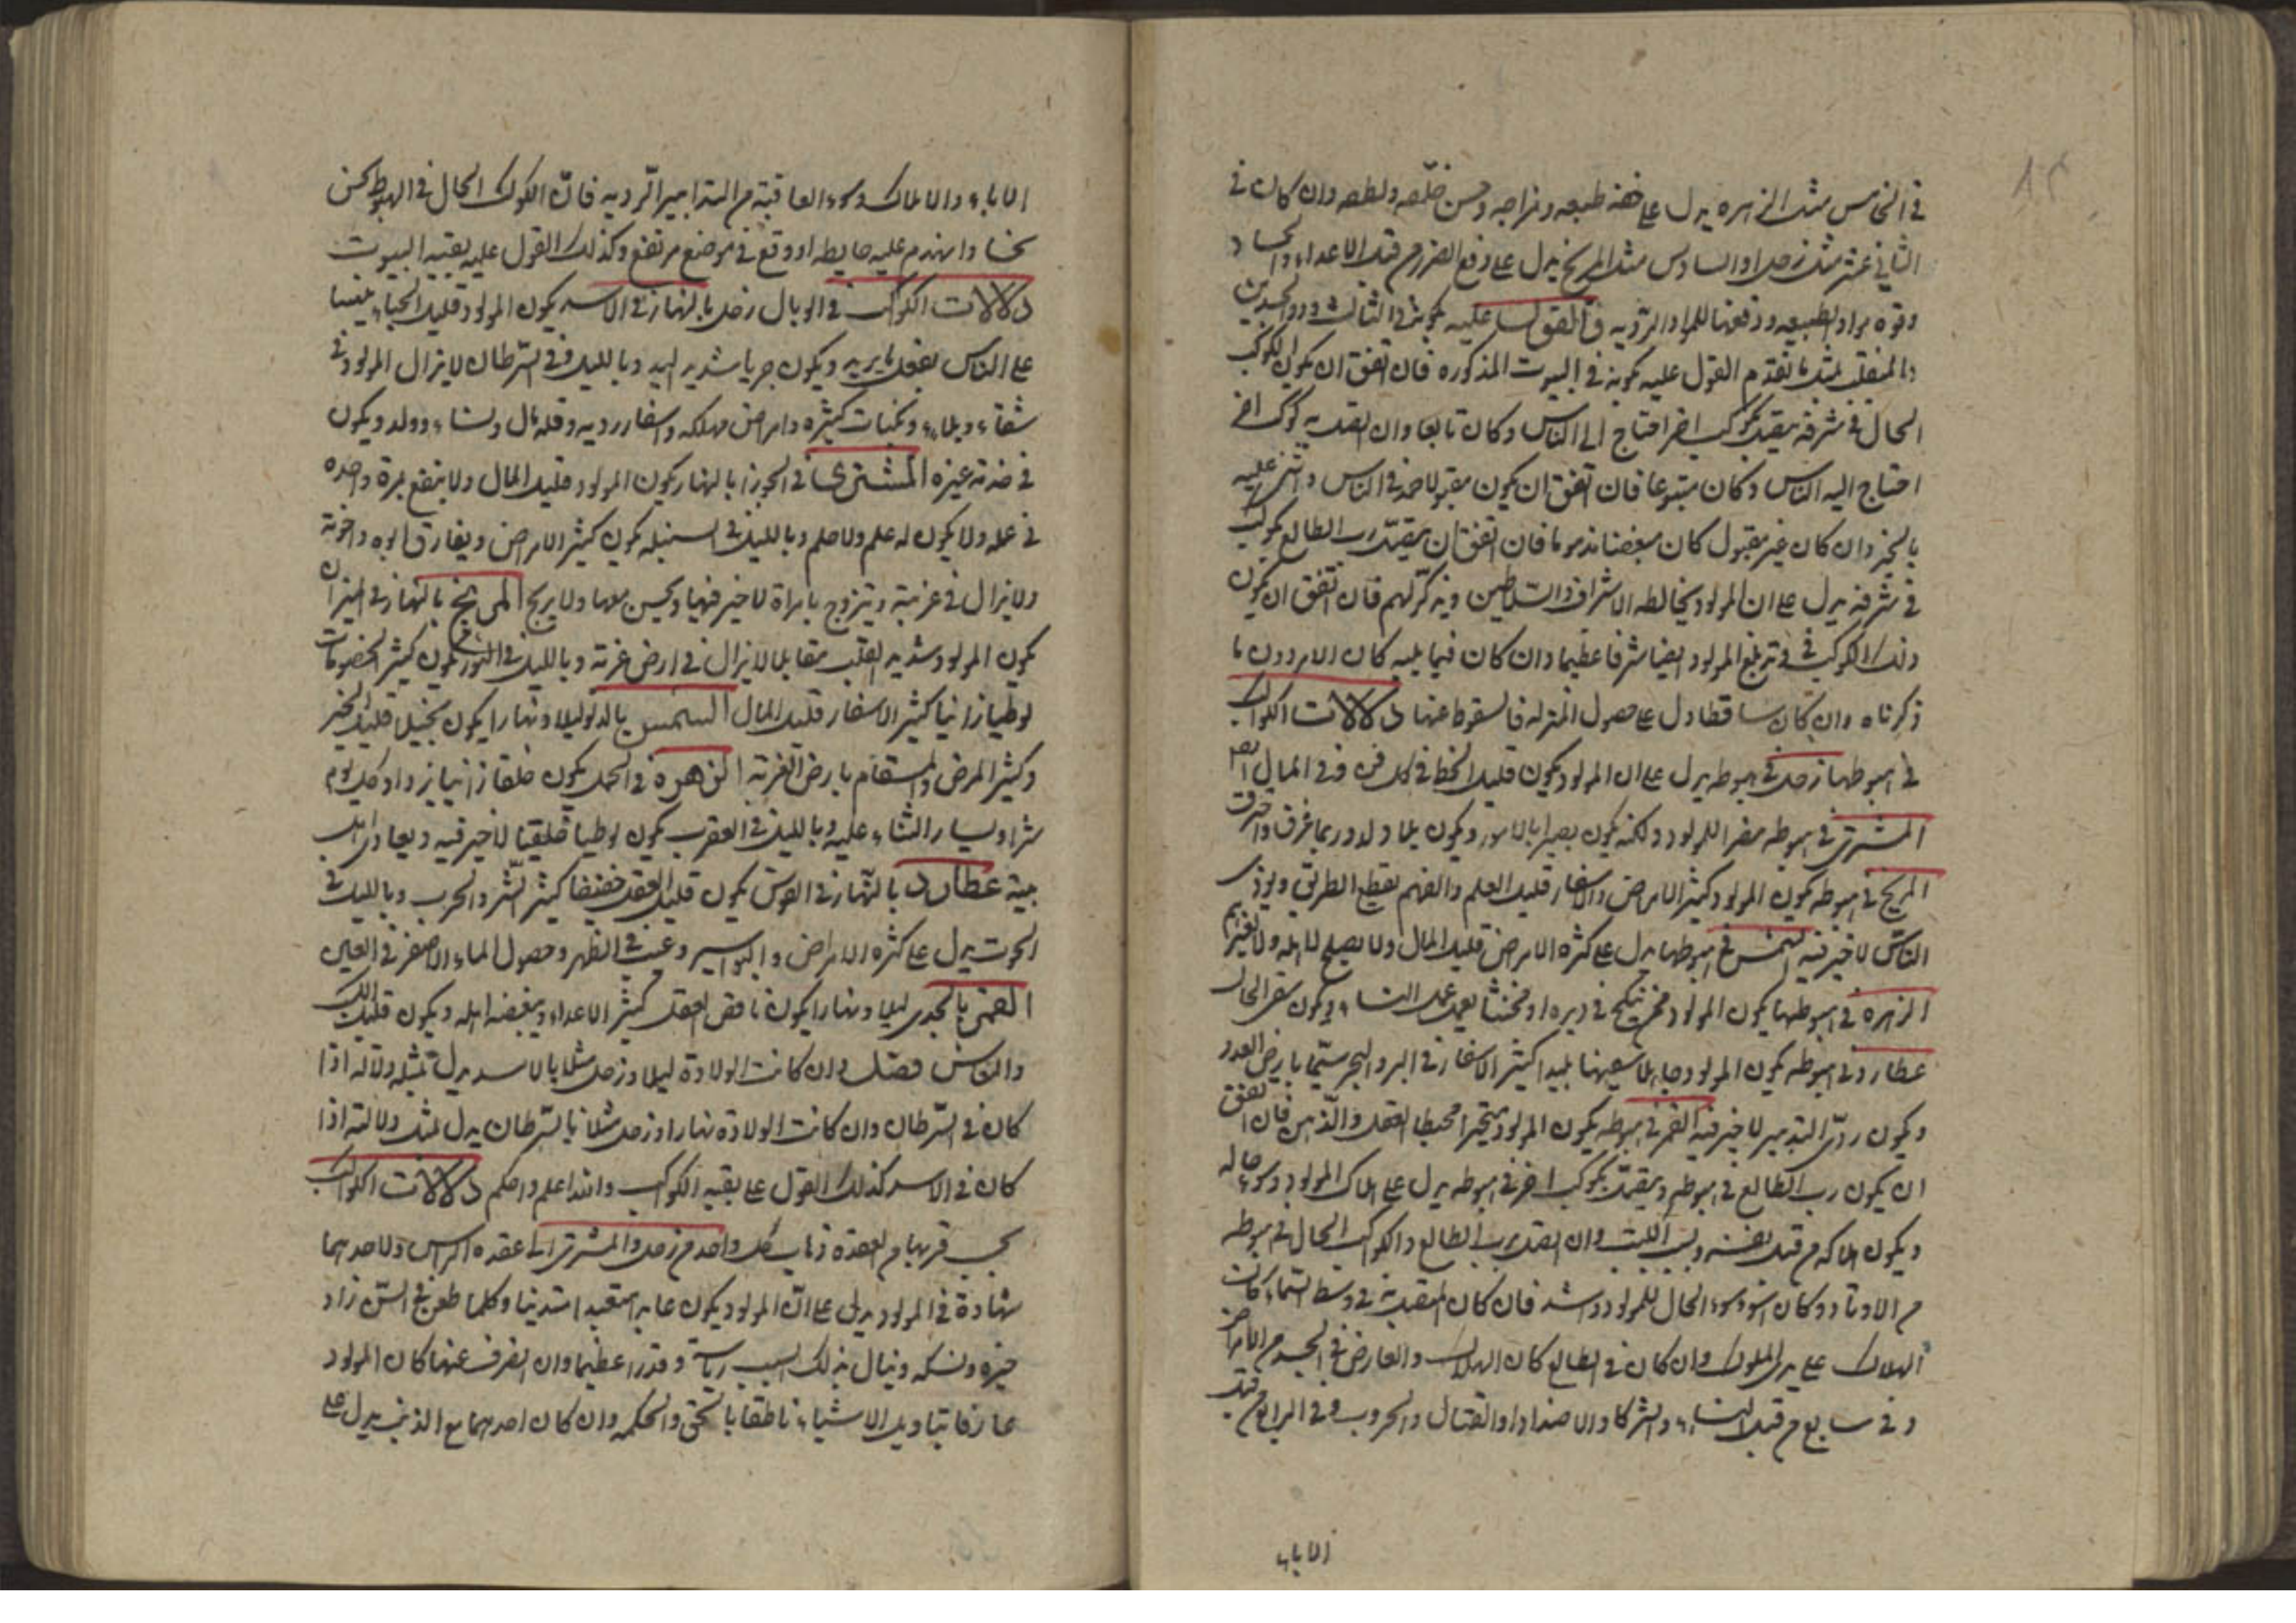 في الخامس مثل الزهره يدل على خفة طبيعه ومزاجه وحسن خلقه ولطفه وان كان في
الثاني عشر مثل زحل او السادس مثل المريخ يدل على دفع الضرر من قبل الاعداء والحساد
وقوه مواد الطبيعه ودفعها للمواد الرديه فالقول عليه كونه في الثالث وذو الجسدين
والمنقلب بمثل ما تقدم القول عليه كونه في البيوت المذكوره فان اتفق ان يكون الكوكب
الحال في شرفه يتصل بكوكب اخر احتاج الى الناس وكان تابعا وان اتصل به كوكب اخر
احتاج اليه الناس وكان متبوعا فان اتفق ان يكون مقبولا حمد في الناس واثني عليه
بالخير وان كان غير مقبول كان مبغضا مذموما فان اتفق ان يتصل رب الطالع بكوكب
في شرفه يدل على ان المولود يخالطه الاشراف والسلاطين ويذكر لهم فان اتفق ان يكون
ذلك الكوكب في وتد بلغ المولود ايضا شرفا عظيما وان كان فيما يليه كان الامر دون ما
ذكرناه وان كان ساقطا دل على حصول المنزله فالسقوط عنها دلالات الكواكب
في هبوطها زحل في هبوطه يدل على ان المولود يكون قليل الحظ في كل فن وفي المال
المشتري في هبوطه مضرا للمولود ولكنه يكون بصيرا بالامور ويكون بلا ولد وربما غرق واحترق
المريخ في هبوطه يكون المولود كثير الامراض والاسفار قليل العلم والفهم يقطع الطريق ويوذي
الناس لا خير فيه الشمس في هبوطها يدل على كثره الامراض قليل المال ولا يصلح لاهله ولا لغيرهم
الزهره في هبوطها يكون المولود ينكح في دبره او مخنثا يعمل عمل النسا ويكون الحال
عطارد في هبوطه يكون المولود جاهلا سفيها بليدا كثير الاسفار في البر والبحر سيما بارض العدو
ويكون ردي التدبير لا خير فيه القمر في هبوطه يكون المولود متحيرا مخبط العقل والذهن فان اتفق
ان يكون رب الطالع في هبوطه ويتصل بكوكب اخر في هبوطه يدل على هلاك المولود وسوء حاله
ويكون هلاكه من قبل نفسه وان اتصل برب الطالع والكوكب الحال في هبوطه
من الاوتاد وكان اسوء الحال للمولود واشد فان كان المتصل به في وسط السماء كانت
الهلاك على يد الملوك وان كان في الطالع كان الهلاك والعارض في الجسد من الامراض
وفي سابع من قبل النساء والشركا والاضداد والقتال والحروب وفي الرابع من قبل
الاباء
الاباء والاملاك وسوء العاقبة من التدابير الرديه فان الكوكب الحال في الهبوط نحس
نحسا وانهدم عليه حايطه او وقع في موضع مرتفع وكذلك القول عليه بقيه البيوت
دلالات الكواكب في الوبال زحل بالنهار في الاسد يكون المولود قليل الحياء
على الناس بفعل ما يريد ويكون جريا شديد اليد وبالليل وفي السرطان لا يزال المولود في
شقاء وبلاء ونكبات كثيره وامراض مهلكه واسفار رديه وقله مال ونساء وولد ويكون
في خدمة غيره المشتري في الجوزا بالنهار يكون المولود قليل المال ولا ينتفع مرة واحده
في عمله ولا يكون له علم ولا حلم وبالليل في السنبله يكون كثير الامراض ويفارق ابوه واخوته
ولا يزال في غربة ويتزوج بامراة لا خير فيها ولا يربح المريخ بالنهار في الميزان
يكون المولود شديد القلب مقاتلا لا يزال في ارض غربة وبالليل في الثور يكون كثير الخصومات
لوطيا زانيا كثير الاسفار قليل المال الشمس بالدلو ليلا ونهارا يكون بخيل قليل الخير
وكثير المرض والاسقام بارض الغربة الزهرة في الحمل يكون زانيا يزداد كل يوم
شرا الثناء عليه وبالليل في العقرب يكون لوطيا لا خير فيه ويعادى اهل
بيته عطارد بالنهار في القوس يكون قليل العقل خفيفا كثير الشر والحرب وبالليل في
الحوت يدل على كثره الامراض والبواسير وعيب في الظهر وحصول الماء الاصفر في العين
القمر بالجدى ليلا ونهارا يكون ناقص العقل كثير الاعداء ويبغضه اهله ويكون قليل
والناس فصل وان كانت الولادة ليلا وزحل مثلا بالاسد يدل بمثل دلاله اذا
كان في السرطان وان كانت الولادة نهارا وزحل مثلا بالسرطان يدل بمثل دلالته اذا
كان في الاسد كذلك القول على بقيه الكواكب والله اعلم واحكم دلالات الكواكب
بحسب قربها من العقدة ذهاب كل واحد من زحل والمشترى الى عقده الراس ولاحدهما
شهادة في المولود يدل على ان المولود يكون عابدا متدينا وكلما طعن في السن زاد
خيره ونسكه وينال بذلك السبب رياسة وقدرا عظيما وان انصرف عنها كان المولود
عارفا بتاويل الاشياء ناطقا بالحق والحكمه وان كان احدهما مع الذنب يدل على